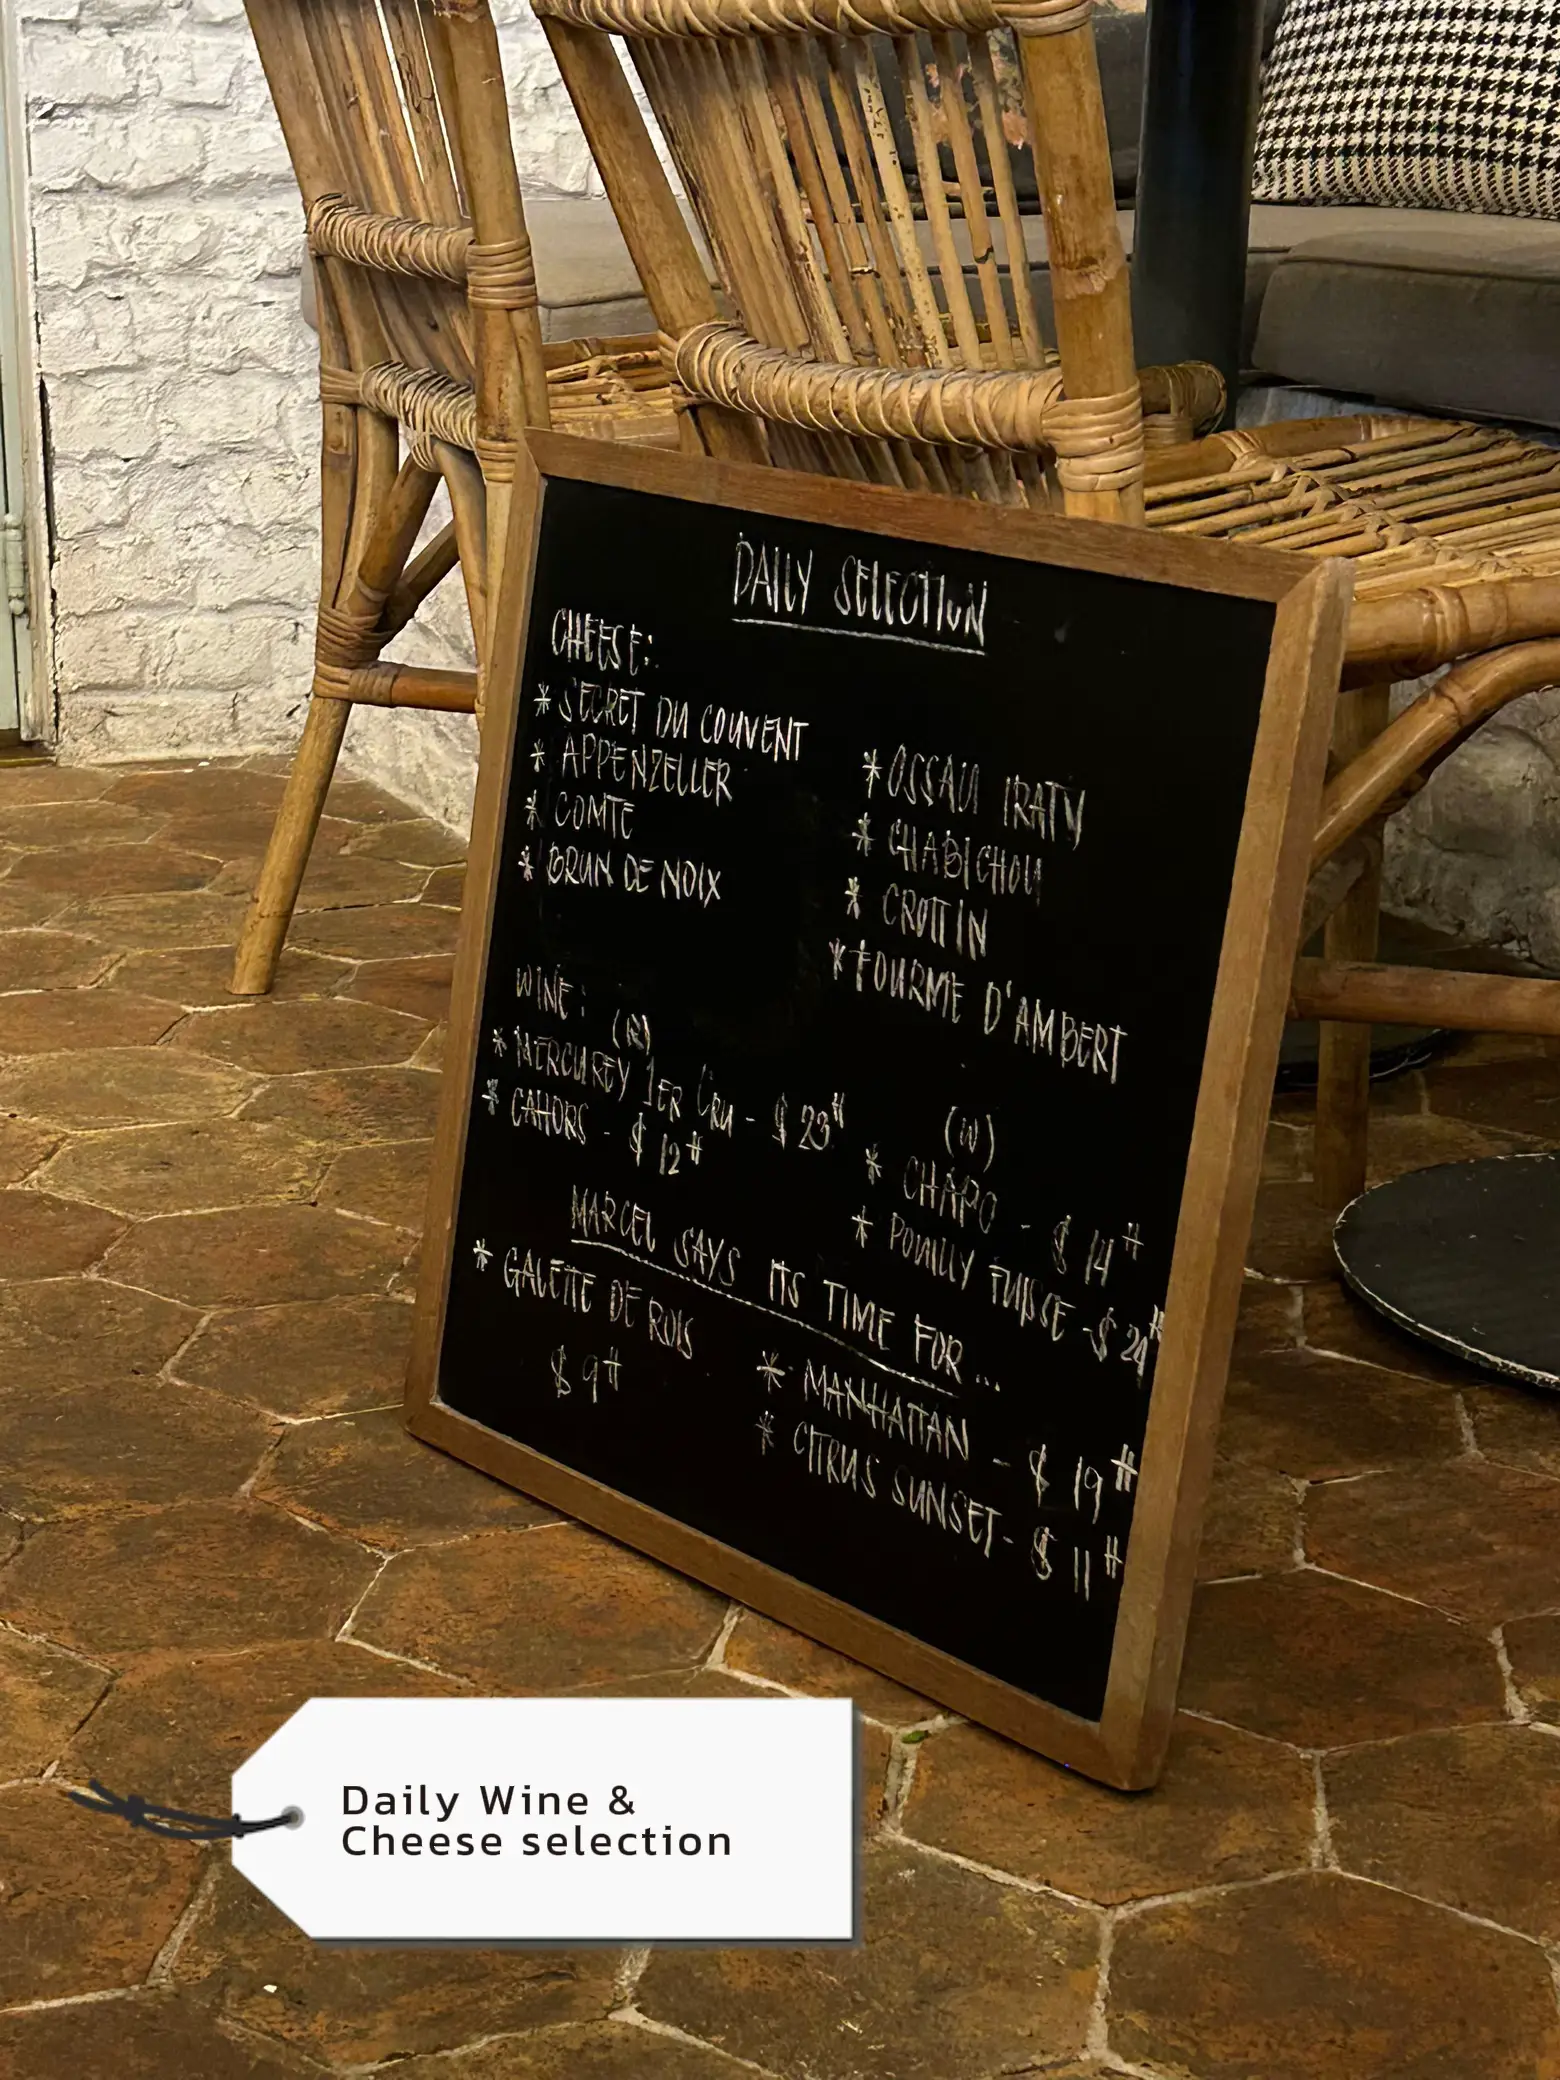 DAILY SELECTION
CHEESE:
* SECRET DU COUVENT
* APPENZELLER
* COMTE
* BRUN DE NOIX
* OSSAU IRATY
* CHABICHOU
* CROTTIN
* FOURME D'AMBERT
WINE:
(R)
* MERCUREY 1ER CRU - $ 23#
* CAHORS - $ 12#
(W)
* CHÁPO - $ 14#
* POUILLY FUISSE - $ 24#
MARCEL SAYS ITS TIME FOR...
* GALETTE DE ROIS
$ 9#
* MANHATTAN - $ 19#
* CITRUS SUNSET - $ 11#
Daily Wine &
Cheese selection